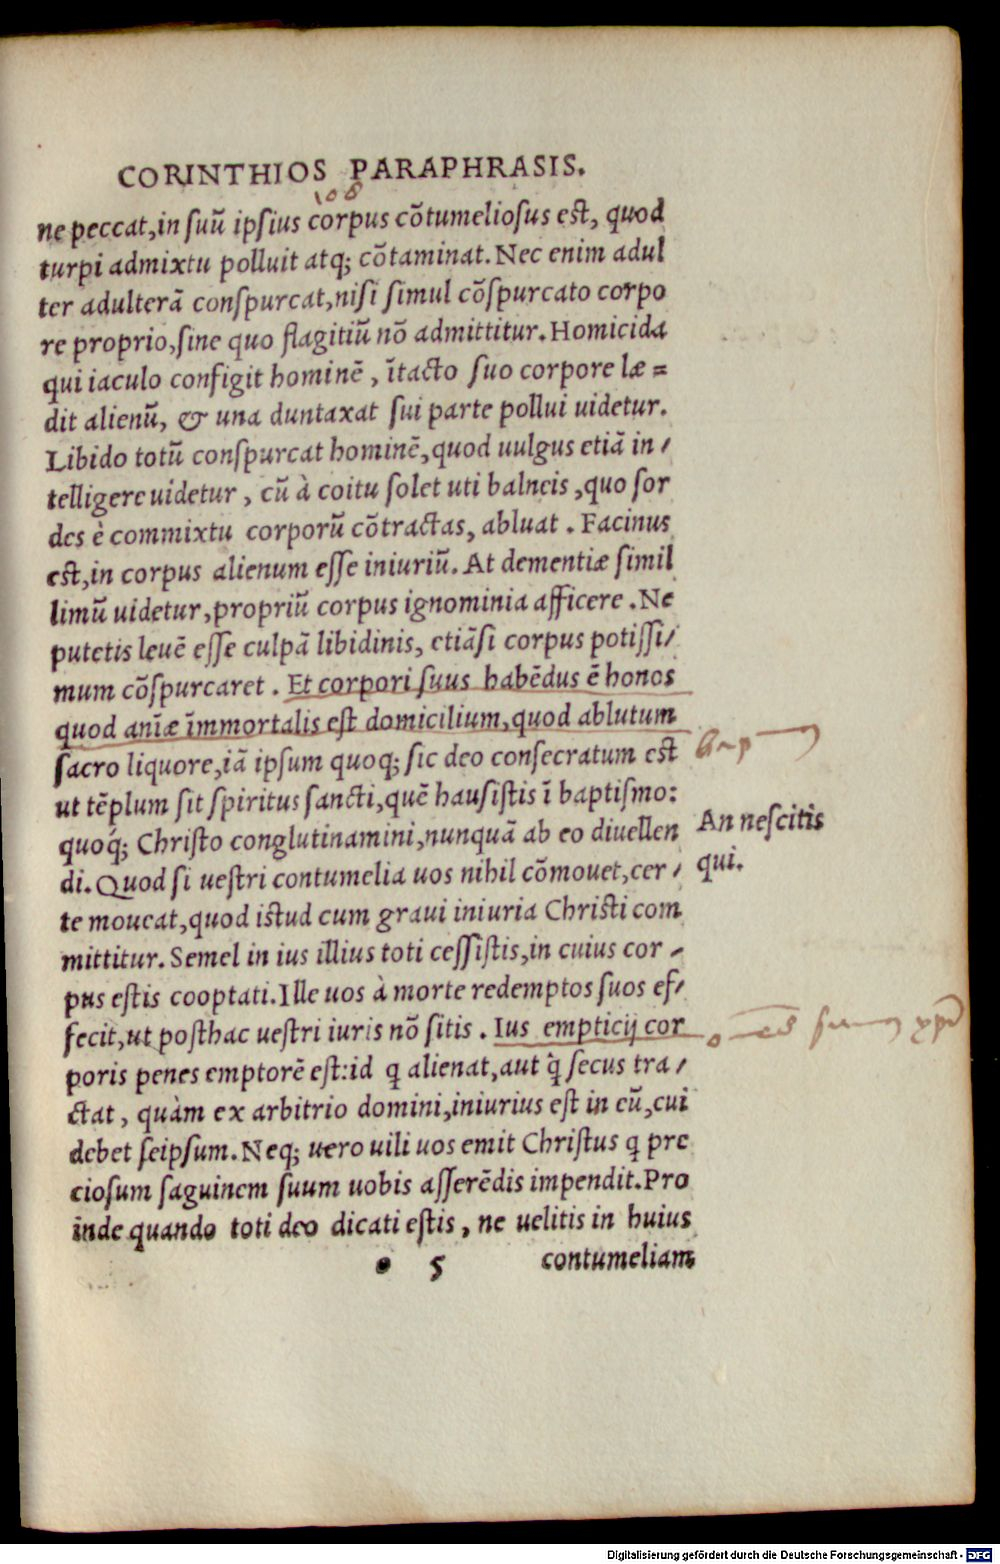 CORINTHIOS PARAPHRASIS.
108
ne peccat, in suū ipsius corpus cōtumeliosus est, quod
turpi admixtu polluit atq; cōtaminat. Nec enim adul
ter adulterā conspurcat, nisi simul cōspurcato corpo
re proprio, sine quo flagitiū nō admittitur. Homicida
qui iaculo configit hominē, ītacto suo corpore læ=
dit alienū, & una duntaxat sui parte pollui uidetur.
Libido totū conspurcat hominē, quod uulgus etiā in/
telligere uidetur, cū à coitu solet uti balneis, quo sor
des è commixtu corporū cōtractas, abluat. Facinus
est, in corpus alienum esse iniuriū. At dementiæ simil
limū uidetur, propriū corpus ignominia afficere. Ne
putetis leuē esse culpā libidinis, etiāsi corpus potissi/
mum cōspurcaret. Et corpori suus habēdus ē honos
quod anīæ īmmortalis est domicilium, quod ablutum
sacro liquore, iā ipsum quoq; sic deo consecratum est
ut tēplum sit spiritus sancti, quē hausistis ī baptismo:
quoq́; Christo conglutinamini, nunquā ab eo diuellen
di. Quod si uestri contumelia uos nihil cōmouet, cer/
te moueat, quod istud cum graui iniuria Christi com
mittitur. Semel in ius illius toti cessistis, in cuius cor/
pus estis cooptati. Ille uos à morte redemptos suos ef/
fecit, ut posthac uestri iuris nō sitis. Ius empticij cor
poris penes emptorē est: id q alienat, aut q̀ secus tra/
ctat, quàm ex arbitrio domini, iniurius est in eū, cui
debet seipsum. Neq; uero uili uos emit Christus q pre
ciosum saguinem suum uobis asserēdis impendit. Pro
inde quando toti deo dicati estis, ne uelitis in huius
5 contumeliam
An nescitis
qui.